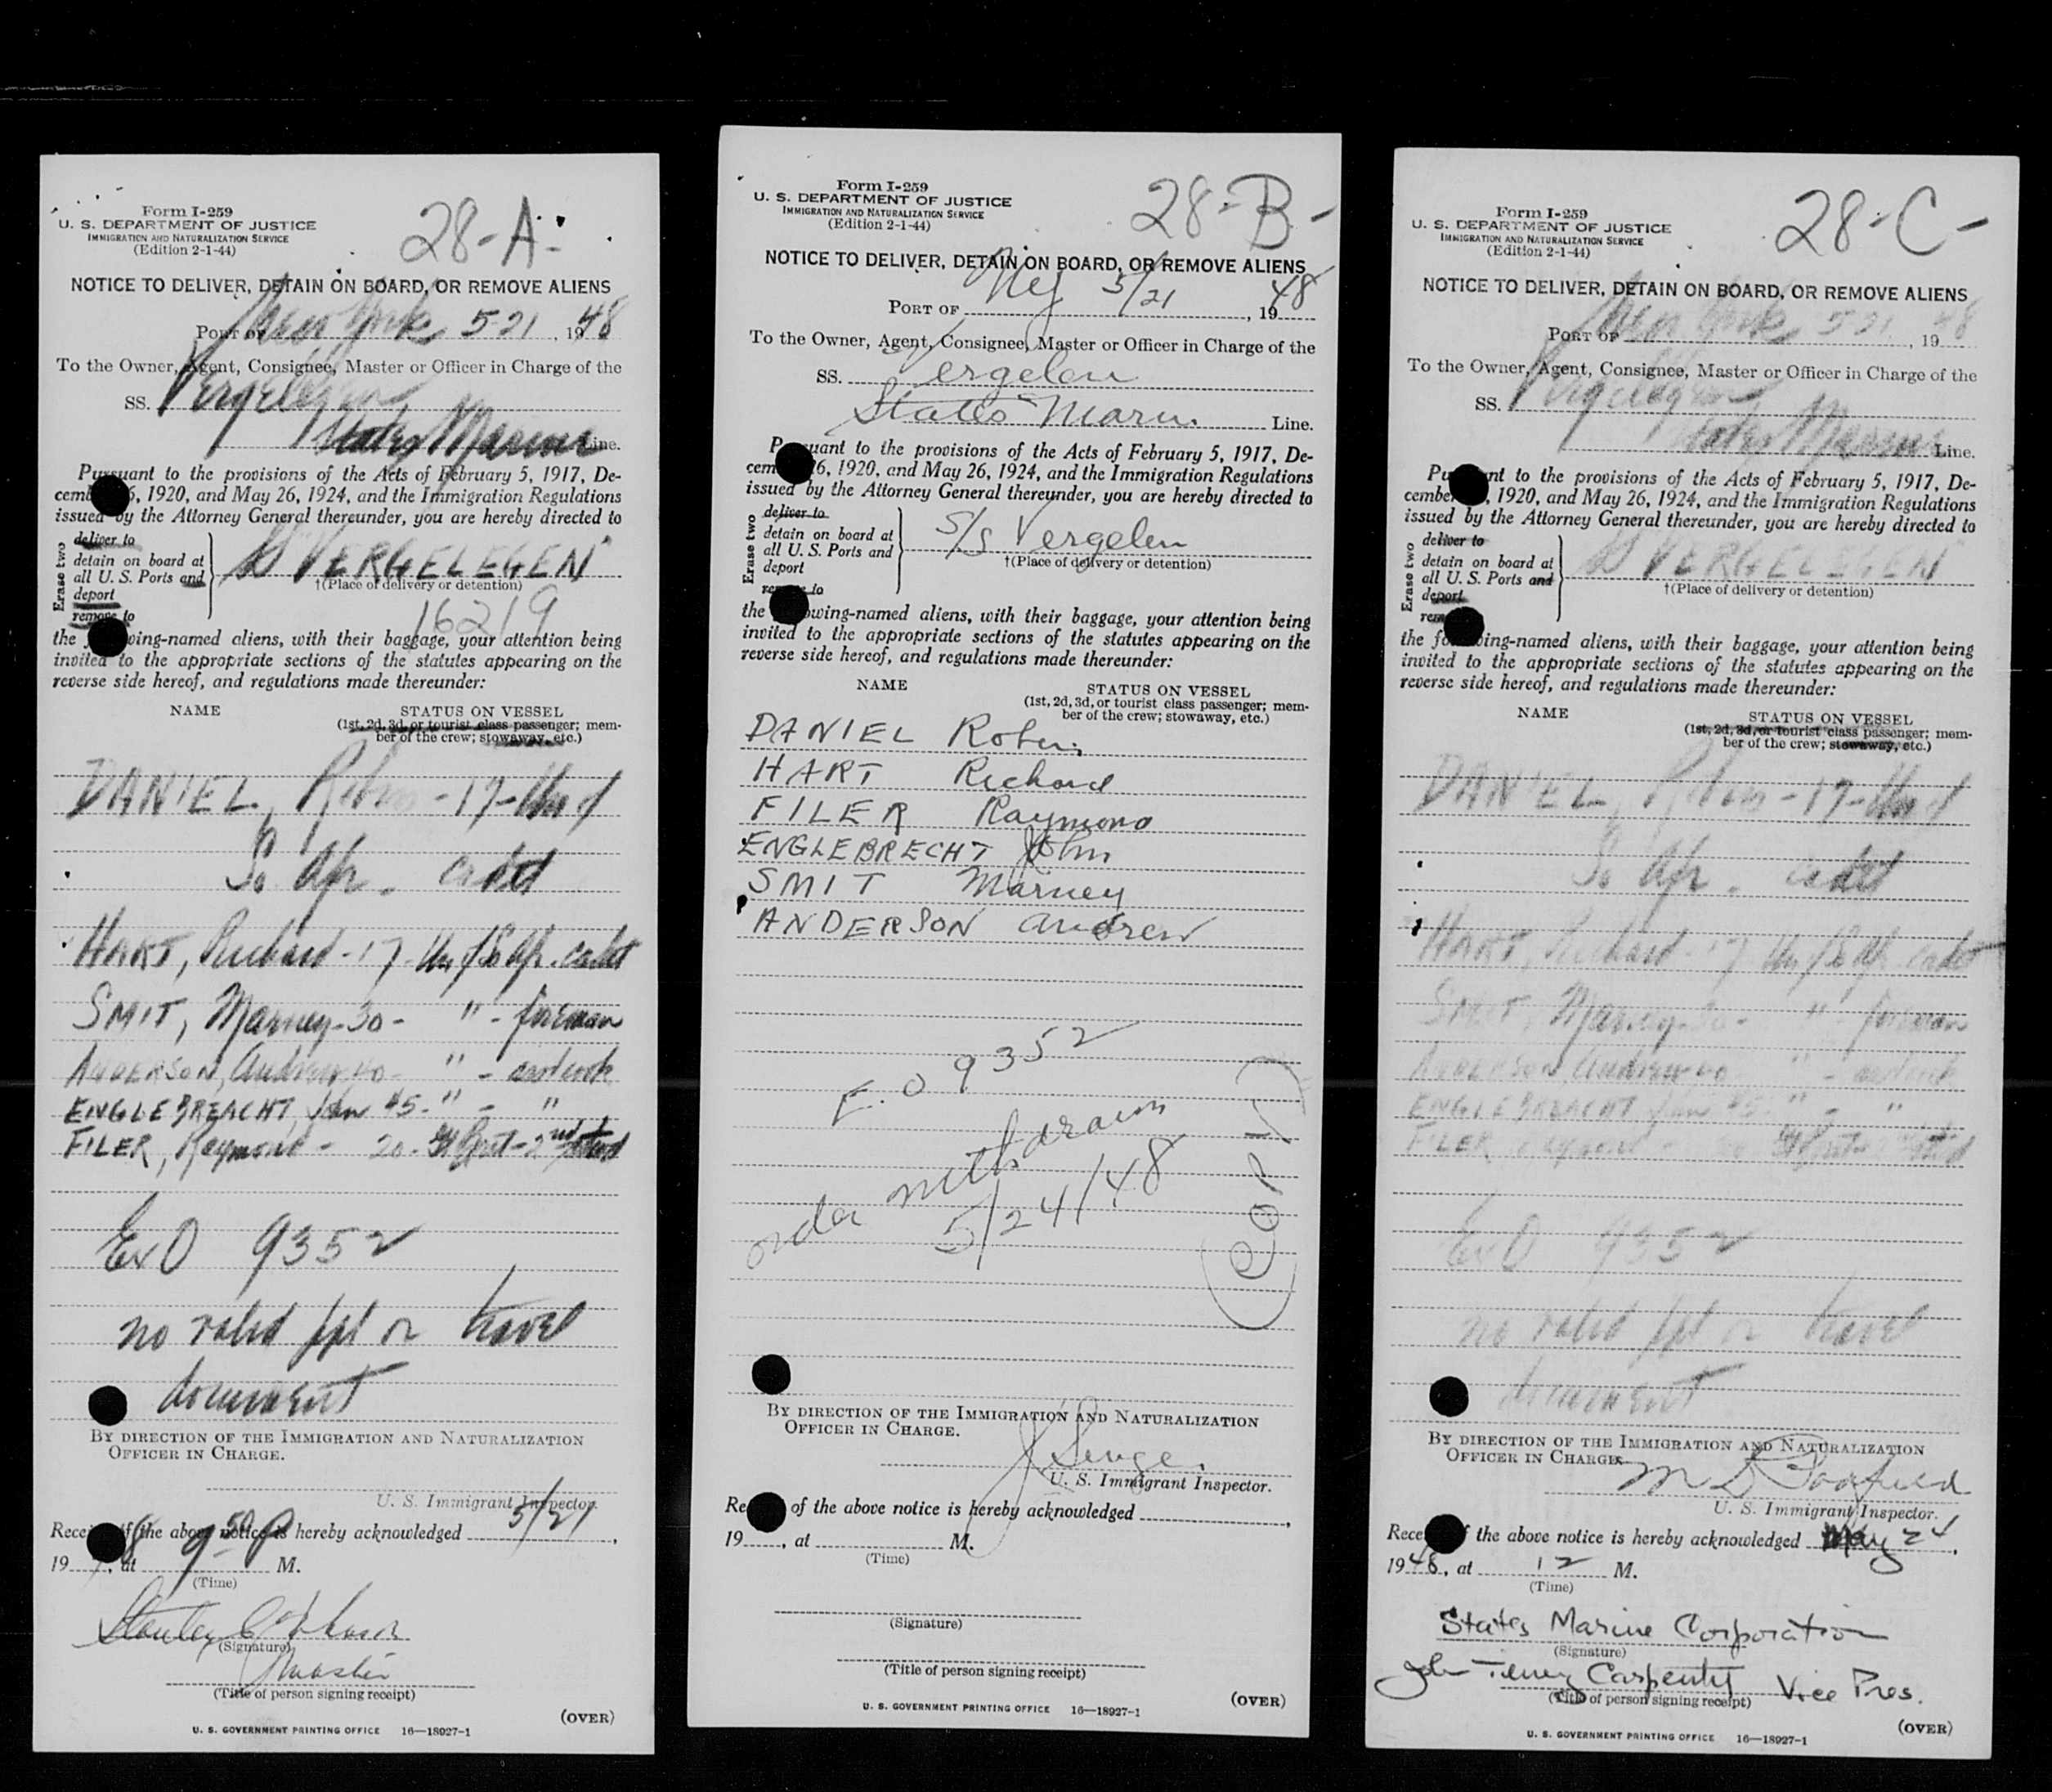 Form I-259
U. S. DEPARTMENT OF JUSTICE
IMMIGRATION AND NATURALIZATION SERVICE
(Edition 2-1-44)
28-A-
NOTICE TO DELIVER, DETAIN ON BOARD, OR REMOVE ALIENS
PORT OF New York 5-21, 1948
To the Owner, Agent, Consignee, Master or Officer in Charge of the
SS. Vergelegen
States Marine Line.
Pursuant to the provisions of the Acts of February 5, 1917, De-
cemb 6, 1920, and May 26, 1924, and the Immigration Regulations
issued by the Attorney General thereunder, you are hereby directed to
Erase two
deliver to
detain on board at
all U. S. Ports and
deport
remove to
SS VERGELEGEN
†(Place of delivery or detention)
16219
the wing-named aliens, with their baggage, your attention being
invited to the appropriate sections of the statutes appearing on the
reverse side hereof, and regulations made thereunder:
NAME STATUS ON VESSEL
(1st, 2d, 3d, or tourist class passenger; mem-
ber of the crew; stowaway, etc.)
DANIEL, Robin - 17 -
So Afr. cadet
HART, Richard - 17 So Afr. cadet
SMIT, Marney - 30 - " - fireman
ANDERSON, Andrew 40 - " -
ENGLEBREACHT, John 45 - " - "
FILER, Raymond - 20 -
ExO 9352
no valid ppt or travel
document
BY DIRECTION OF THE IMMIGRATION AND NATURALIZATION
OFFICER IN CHARGE.
U. S. Immigrant Inspector.
Recei f the above notice is hereby acknowledged 5/21,
1948, at 9 50 P M.
(Time)
Stanley
(Signature)
Master
(Title of person signing receipt)
(OVER)
U. S. GOVERNMENT PRINTING OFFICE 16—18927-1
Form I-259
U. S. DEPARTMENT OF JUSTICE
IMMIGRATION AND NATURALIZATION SERVICE
(Edition 2-1-44)
28-B-
NOTICE TO DELIVER, DETAIN ON BOARD, OR REMOVE ALIENS
PORT OF NY 5/21, 1948
To the Owner, Agent, Consignee, Master or Officer in Charge of the
SS. Vergelen
States Marin. Line.
P uant to the provisions of the Acts of February 5, 1917, De-
cem 6, 1920, and May 26, 1924, and the Immigration Regulations
issued by the Attorney General thereunder, you are hereby directed to
Erase two
deliver to
detain on board at
all U. S. Ports and
deport
remove to
S/S Vergelen
†(Place of delivery or detention)
the owing-named aliens, with their baggage, your attention being
invited to the appropriate sections of the statutes appearing on the
reverse side hereof, and regulations made thereunder:
NAME STATUS ON VESSEL
(1st, 2d, 3d, or tourist class passenger; mem-
ber of the crew; stowaway, etc.)
DANIEL Robin
HART Richard
FILER Raymond
ENGLEBRECHT John
SMIT Marney
ANDERSON Andrew
E.O 9352
order withdrawn
5/24/48
(COPY)
BY DIRECTION OF THE IMMIGRATION AND NATURALIZATION
OFFICER IN CHARGE.
U. S. Immigrant Inspector.
Re of the above notice is hereby acknowledged ,
19 , at M.
(Time)
(Signature)
(Title of person signing receipt)
(OVER)
U. S. GOVERNMENT PRINTING OFFICE 16—18927-1
Form I-259
U. S. DEPARTMENT OF JUSTICE
IMMIGRATION AND NATURALIZATION SERVICE
(Edition 2-1-44)
28-C-
NOTICE TO DELIVER, DETAIN ON BOARD, OR REMOVE ALIENS
PORT OF New York 5-21, 1948
To the Owner, Agent, Consignee, Master or Officer in Charge of the
SS. Vergelegen
States Marine Line.
Pu nt to the provisions of the Acts of February 5, 1917, De-
cembe , 1920, and May 26, 1924, and the Immigration Regulations
issued by the Attorney General thereunder, you are hereby directed to
Erase two
deliver to
detain on board at
all U. S. Ports and
deport
rem
SS VERGELEGEN
†(Place of delivery or detention)
the fo wing-named aliens, with their baggage, your attention being
invited to the appropriate sections of the statutes appearing on the
reverse side hereof, and regulations made thereunder:
NAME STATUS ON VESSEL
(1st, 2d, 3d, or tourist class passenger; mem-
ber of the crew; stowaway, etc.)
DANIEL, Robin - 17 -
So Afr. cadet
HART, Richard - 17 So Afr cadet
SMIT, Marney - 30 - " - fireman
ANDERSON, Andrew 40 " -
ENGLEBREACHT, John 45 - " - "
FILER, Raymond -
ExO 9352
no valid ppt or travel
document
BY DIRECTION OF THE IMMIGRATION AND NATURALIZATION
OFFICER IN CHARGE.
U. S. Immigrant Inspector.
Rece the above notice is hereby acknowledged May 24,
1948, at 12 M.
(Time)
States Marine Corporation
(Signature)
John Tilney Carpenter Vice Pres.
(Title of person signing receipt)
(OVER)
U. S. GOVERNMENT PRINTING OFFICE 16—18927-1